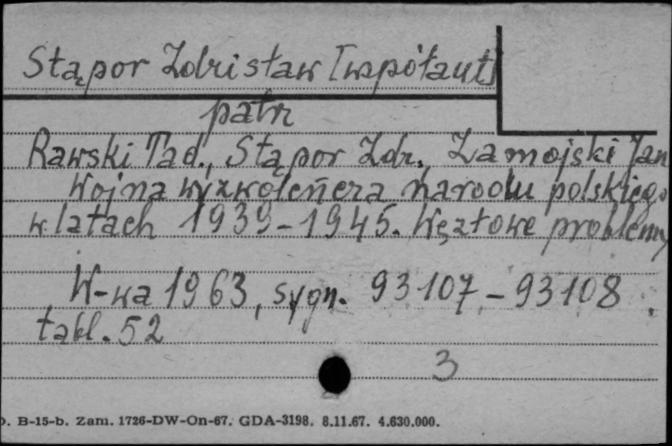 Stąpor Zdzisław [współaut]
patrz
Rawski Tad., Stąpor Zdz., Zamojski Jan
Wojna wyzwoleńcza narodu polskiego
w latach 1939-1945. Węzłowe problemy
W-wa 1963, sygn. 93107-93108.
tabl. 52
3
. B-15-b. Zam. 1726-DW-On-67. GDA-3198. 8.11.67. 4.630.000.